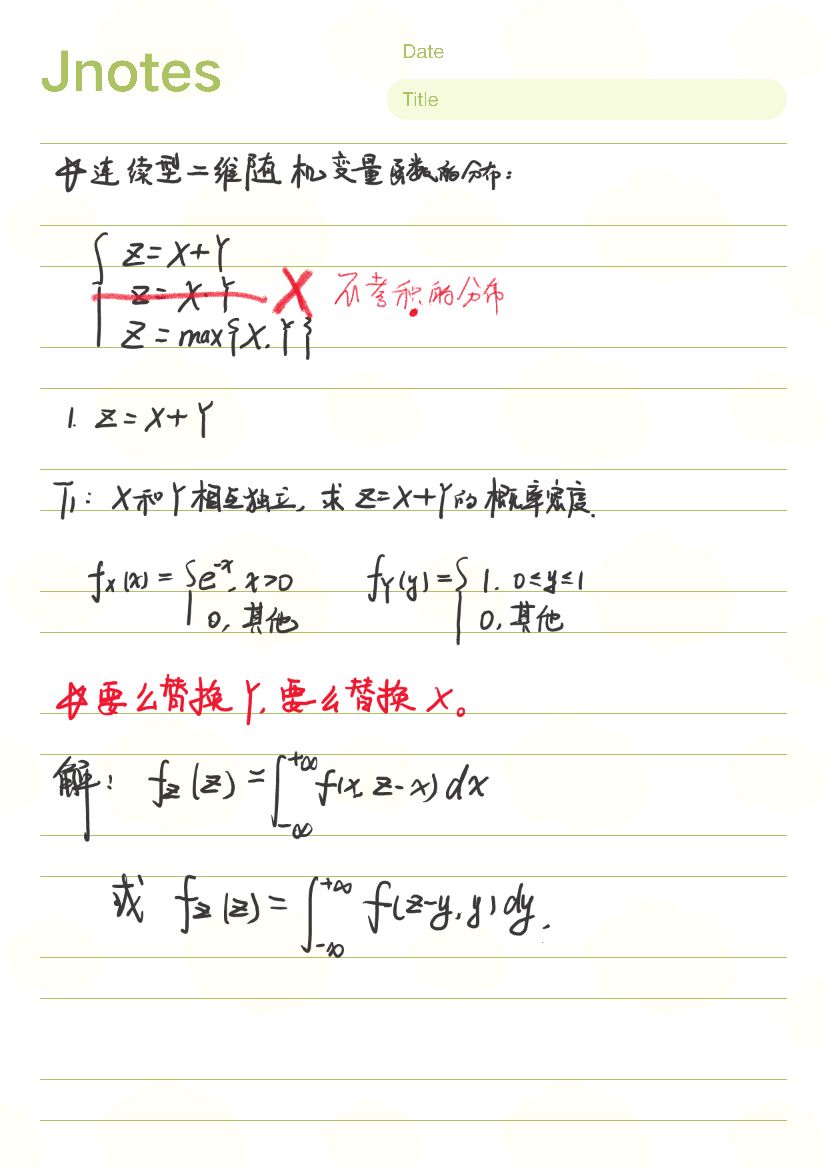 Jnotes
Date
Title
连续型二维随机变量函数的分布:
Z=X+Y
Z=X·Y 不考积的分布
Z=max{X.Y}
1. Z=X+Y
T1: X和Y相互独立, 求Z=X+Y的概率密度.
fx(x)={e^-x, x>0 fY(y)={1. 0≤y≤1
0, 其他 0, 其他
要么替换Y, 要么替换X。
解: fz(z)=∫_-∞^+∞ f(x, z-x)dx
或 fz(z)=∫_-∞^+∞ f(z-y, y)dy.